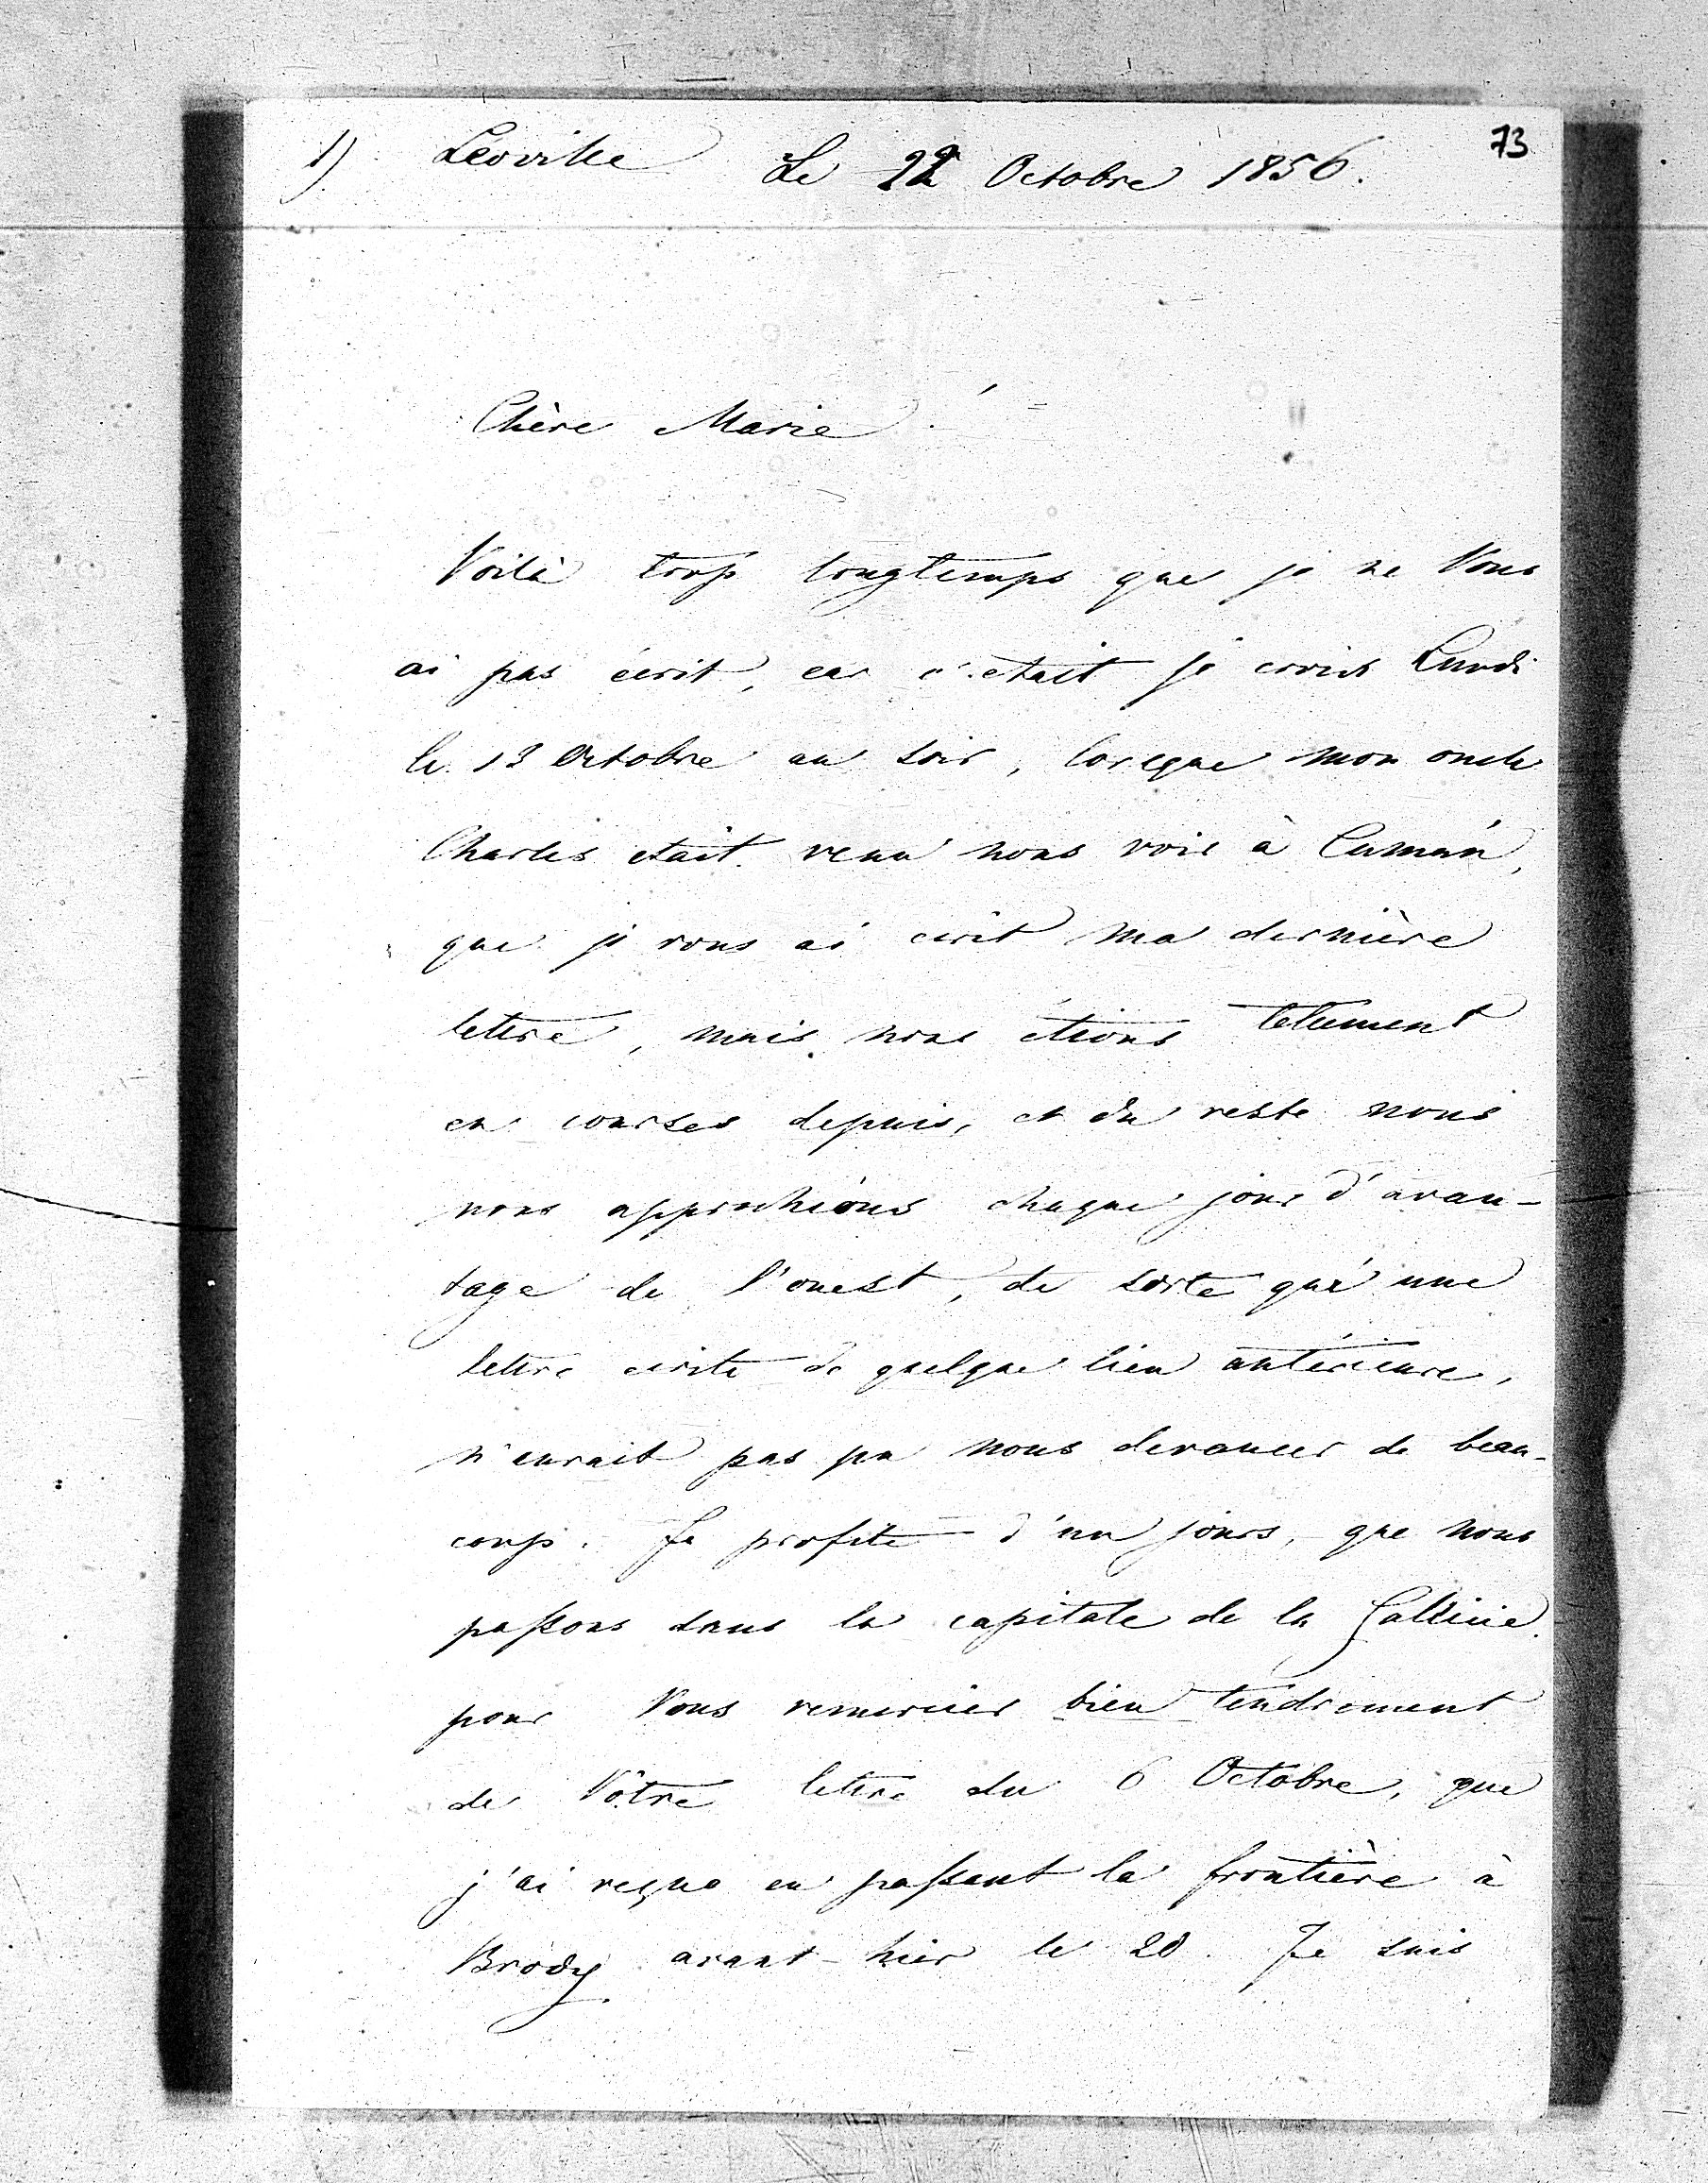 73
1) Léoville Le 22 Octobre 1856.
Chère Marie!
Voilà trop longtemps que je ne Vous
ai pas écrit, car c'etait je crois Lundi
le 13 Octobre au soir, lorsque mon oncle
Charles etait venu nous voir à Cumań,
que je vous ai ecrit ma dernière
lettre, mais nous étions tellement
en courses depuis, et du reste nous
nous approchions chaque jour d'avan-
tage de l'ouest, de sorte qu'une
lettre ecrite de quelque lieu antérieure,
n'eurait pas pu nous devancer de beau-
coup. Je profite d'un jours, que nous
passons dans la capitale de la Gallicie
pour Vous remercier bien tendrement
de Vôtre lettre du 6 Octobre, que
j'ai reçue en passant la frontière à
Brody avant-hier le 20. Je suis